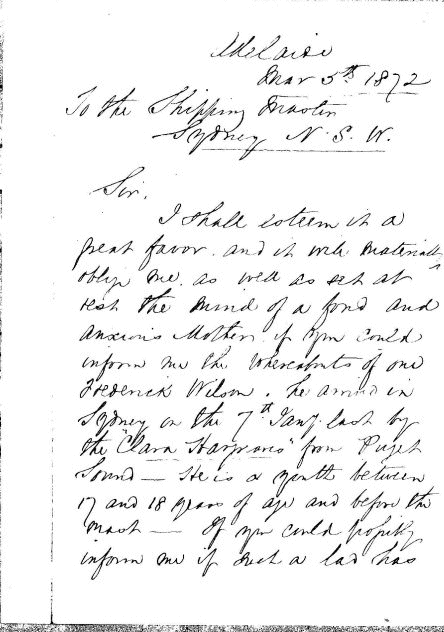 Adelaide
Mar 5th 1872
To the Shipping Master
Sydney N. S. W.
Sir,
I shall esteem it a
great favor and it will materially
oblige me as well as set at
rest the mind of a fond and
anxious Mother if you could
inform me the whereabouts of one
Frederick Wilson. he arrived in
Sydney on the 7th Jany. last by
the "Clara Hargraves" from Puget
Sound — He is a youth between
17 and 18 years of age and before the
mast — If you could possibly
inform me if such a lad has